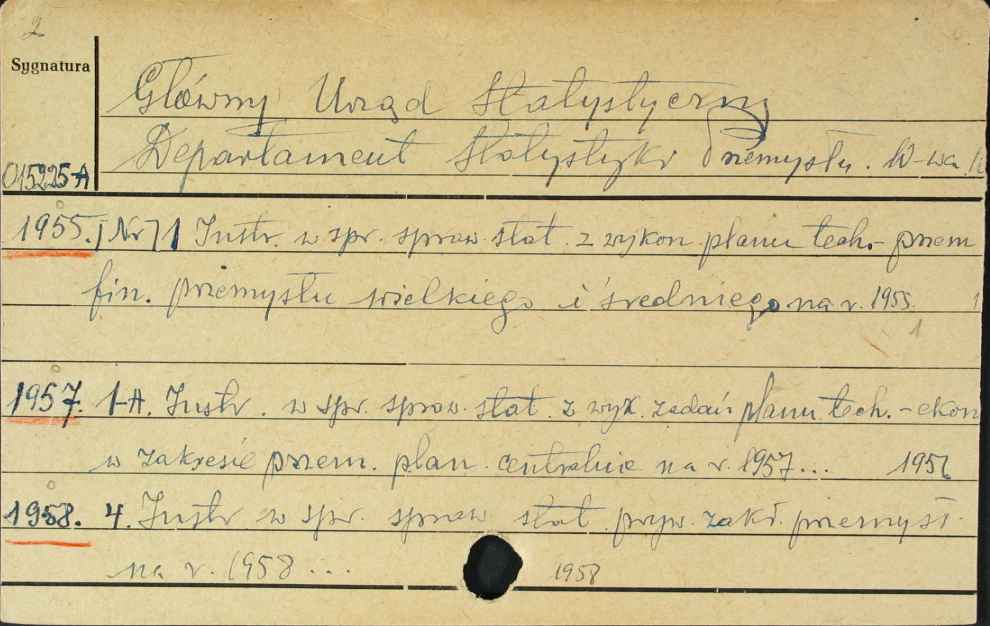 2
Sygnatura
Główny Urząd Statystyczny
Departament Statystyki Przemysłu. W-wa
015225-A
1955. Nr 1 Instr. w spr. spraw. stat. z wykon. planu tech.- przem
fin. przemysłu wielkiego i średniego na r. 1955. 1
1
1957. 1-A. Instr. w spr. spraw. stat. z wyk. zadań planu tech.-ekon
w zakresie przem. plan. centralnie na r. 1957... 1956
1958. 4. Instr w spr. spraw stat. pryw. zakł. przemysł.
na r. 1958... 1958